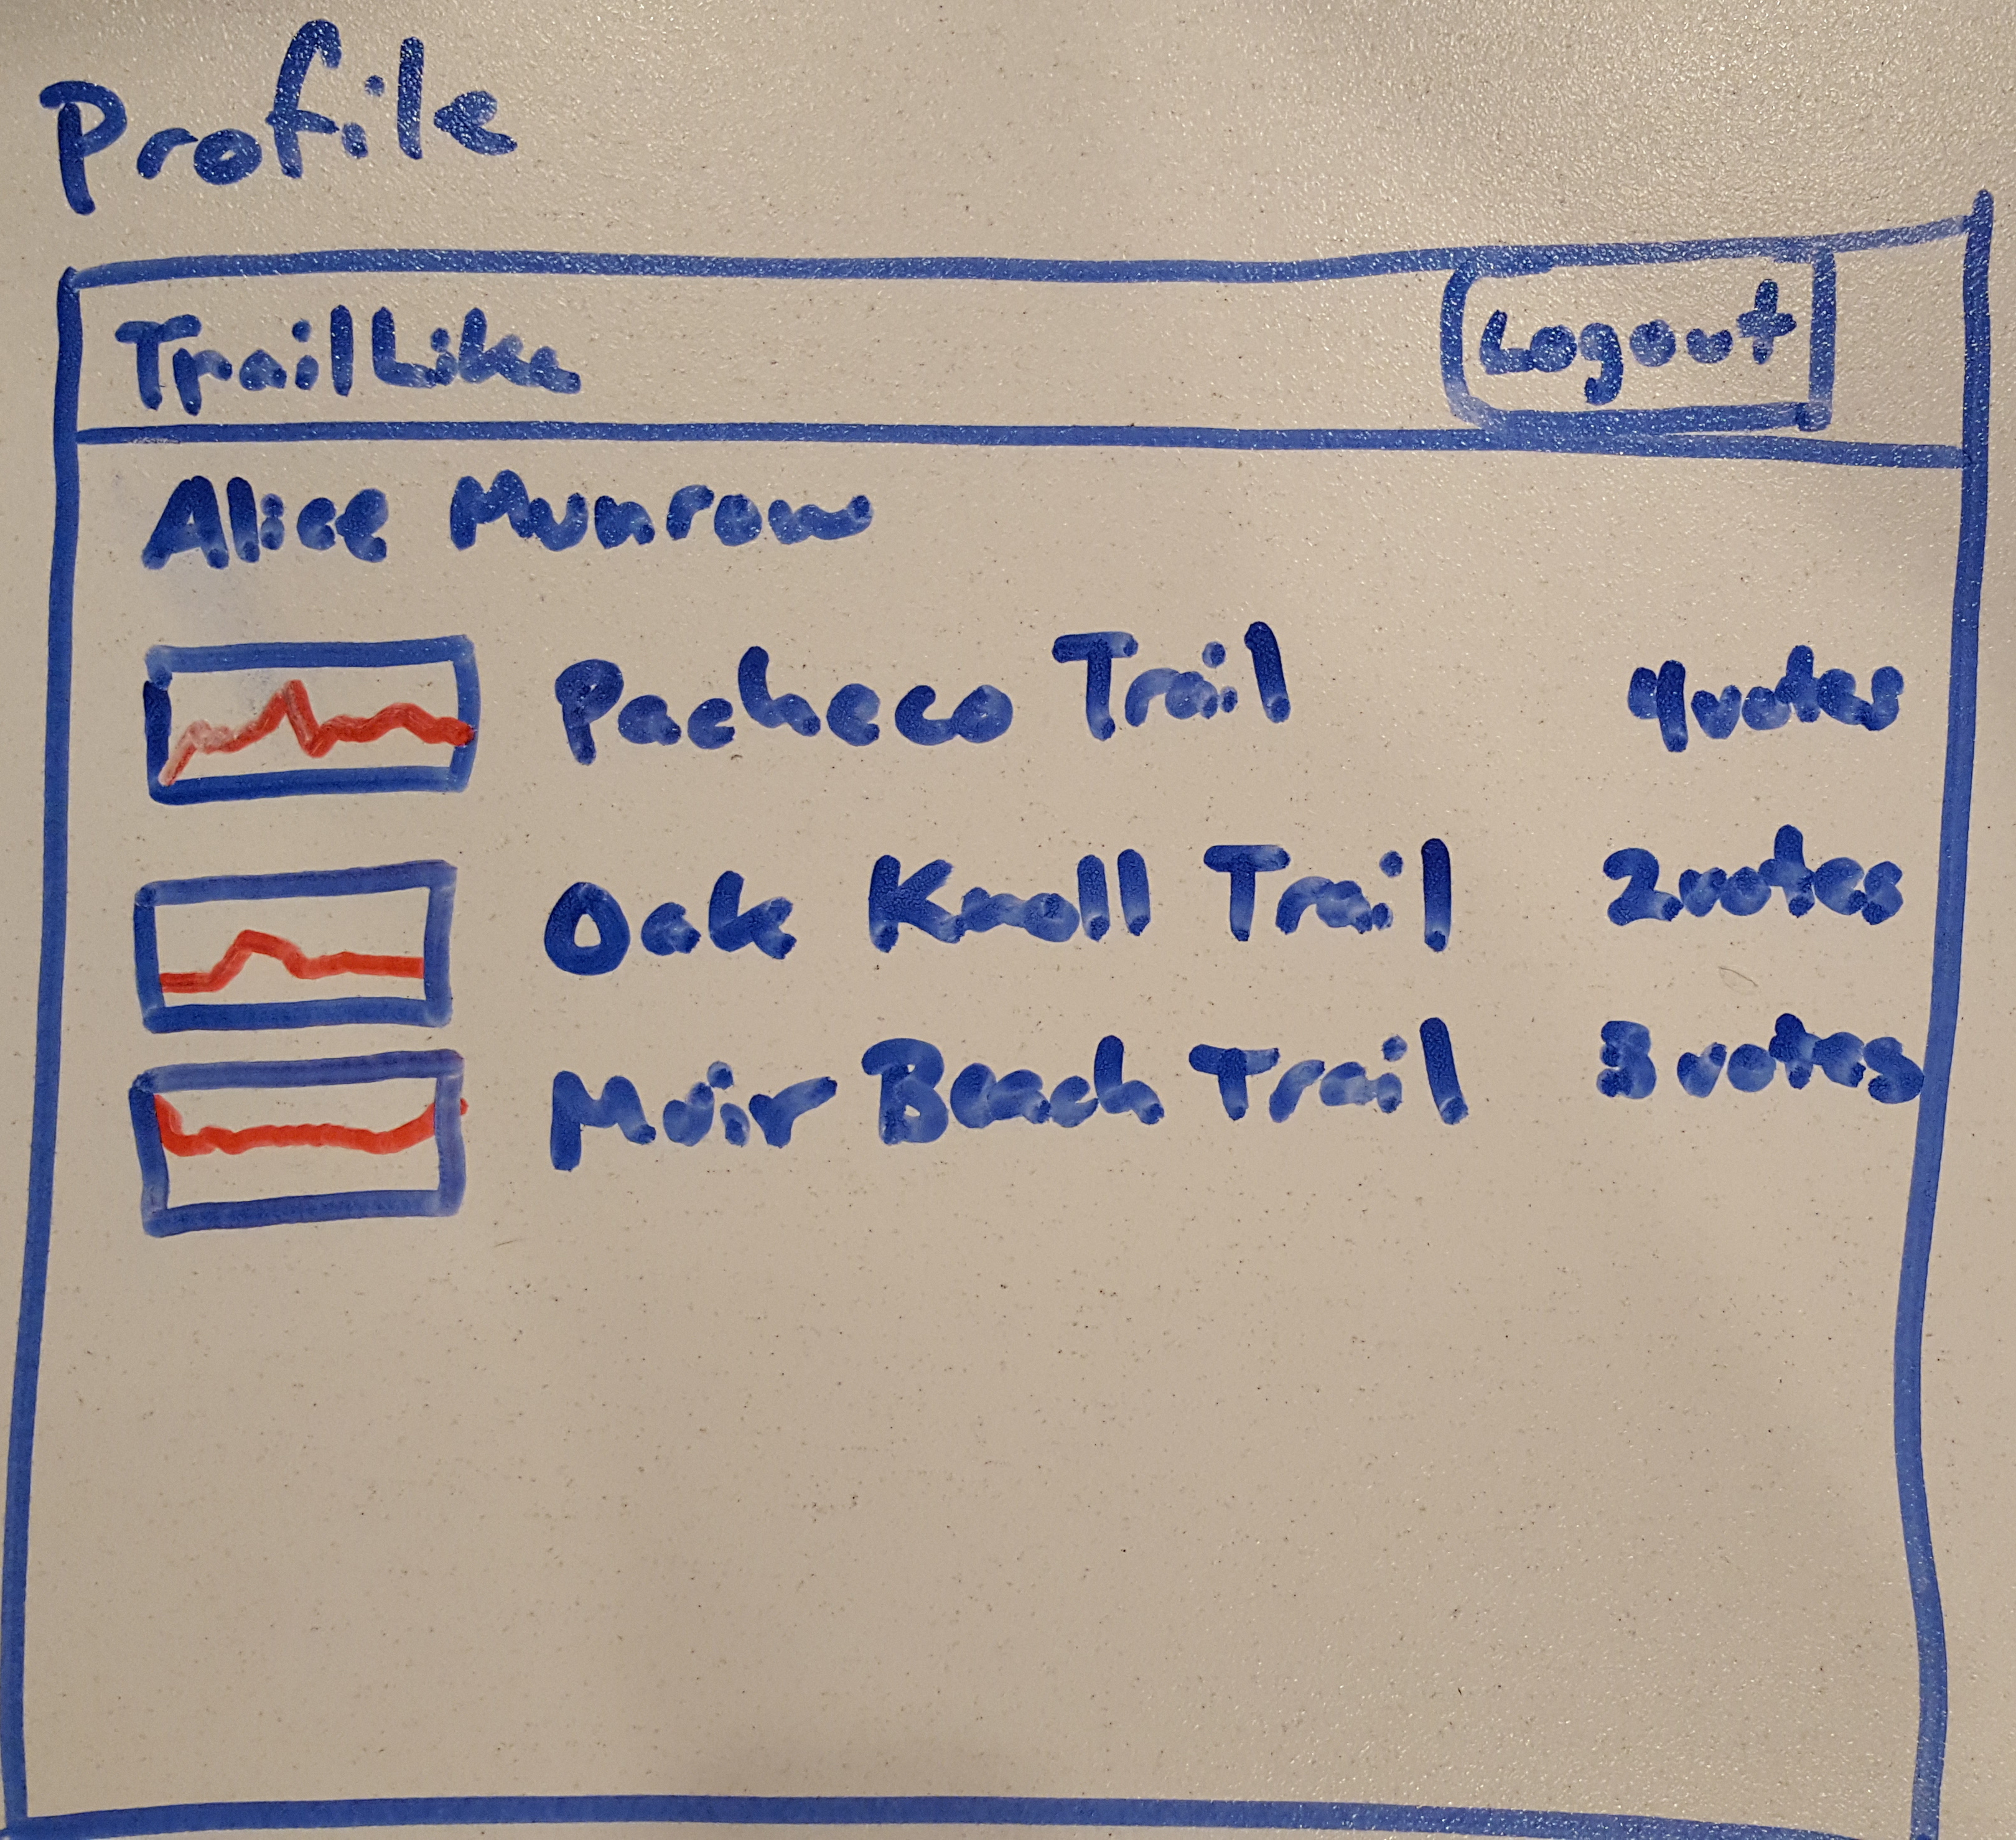 Profile
TrailLike Logout
Alice Munrow
Pacheco Trail 4votes
Oak Knoll Trail 2votes
Muir Beach Trail 3 votes